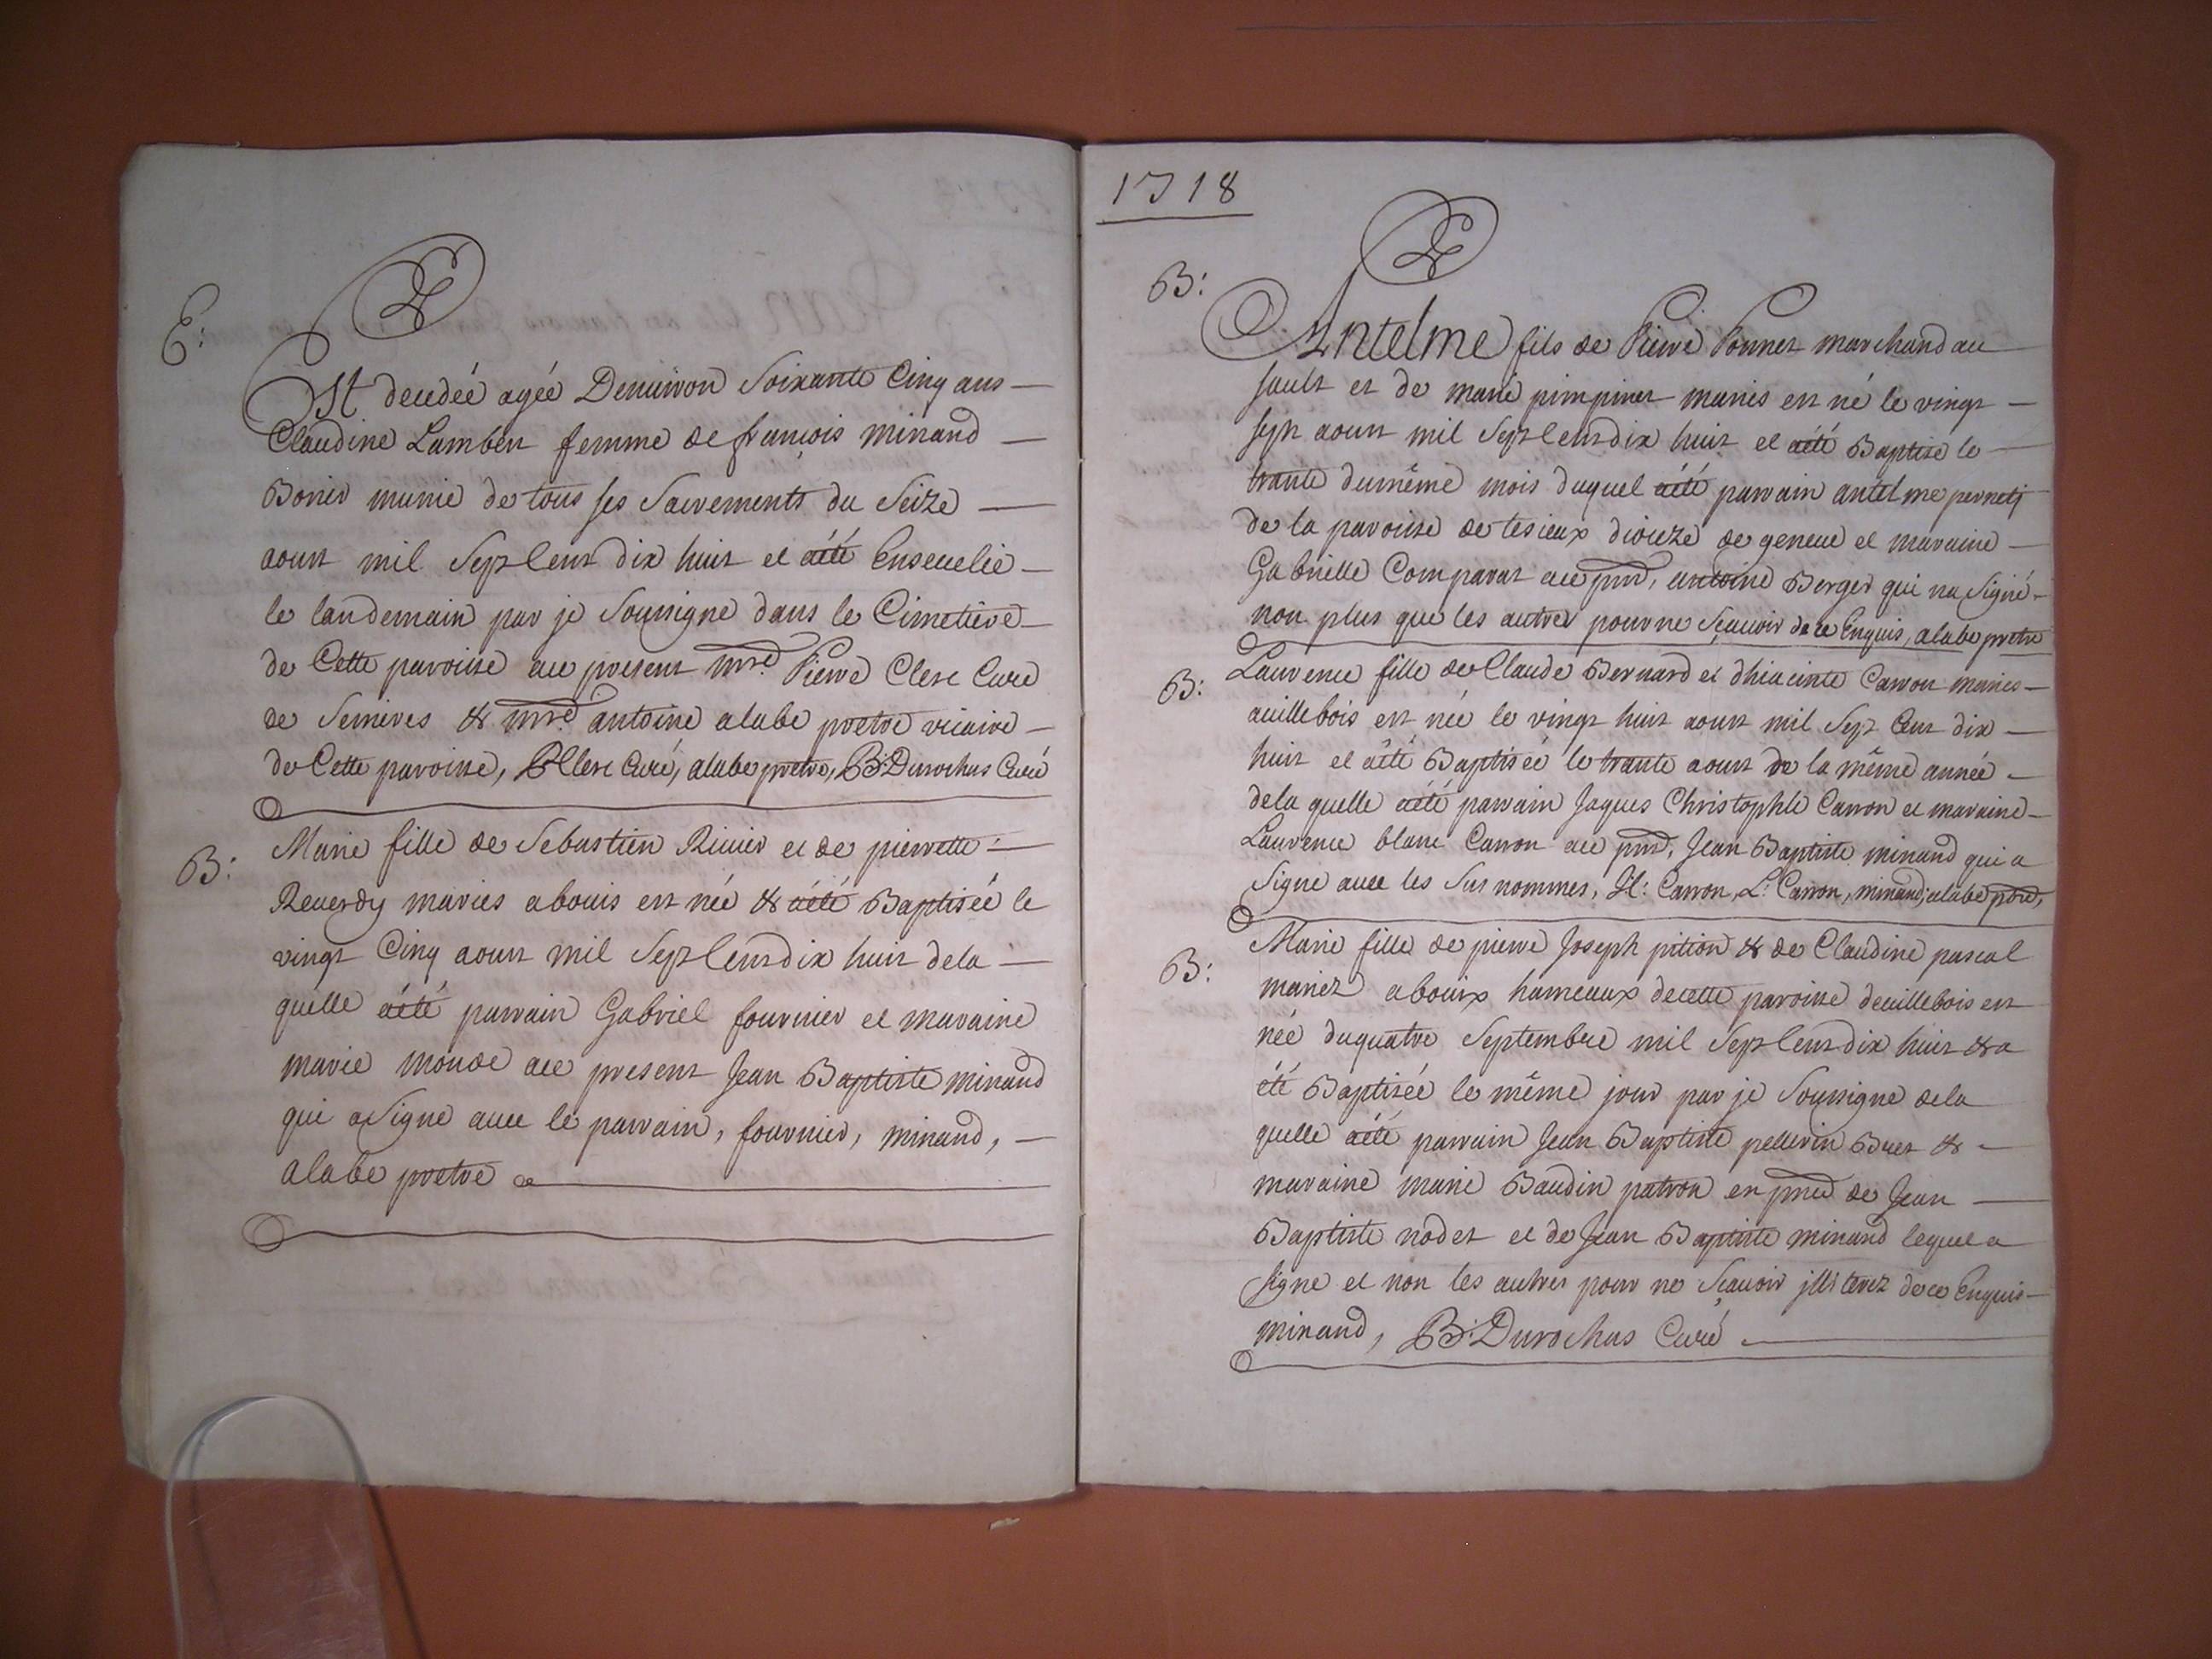 E:
Est decedéé agéé Denuiron Soixante Cinq ans
Claudine Lambert femme de françois minand
Borier munie de tous ses Sacrements du Seize
aoust mil Sept Cent dix huit et aété Enseuelie
le landemain par je Soussigne dans le Cimetiere
de Cette paroisse au present mre. Pierre Clerc Curé
de Semieres & mre antoine alabe pretre vicaire
de Cette paroisse, P Clerc Curé, alabe pretre, B: Durochas Curé
B:
Marie fille de Sebastien Riuier et de pierrette
Reuerdy maries abouis est née & aété Baptiséé le
vingt Cinq aoust mil Sept Cent dix huit dela
quelle aété parrain Gabriel fournier et maraine
marie monde au present Jean Baptiste minand
qui aSigne auec le parrain, fournier, minand,
alabe pretre
1718
B:
Antelme fils de Pierre Ponnet marchand au
sault et de marie pimpinet maries est né le vingt
sept aoust mil Sept Cent dix huit et aété Baptise le
trante dumême mois duquel aété parrain antelme pernetj
de la paroisse de tesieux dioceze de geneue et maraine
Gabrielle Comparat au pnt, antoine Berger qui na Signé
non plus que les autres pour ne Sçauoir de ce Enquis, alabe pretre
B:
Laurence fille de Claude Bernard et dhiacinte Carron maries
auillebois est née le vingt huit aoust mil Sept Cent dix
huit et aété Baptiséé le trante aoust de la même année
dela quelle aété parrain Jaques Christophle Carron et maraine
Laurence blanc Carron au pnt, Jean Baptiste minand qui a
Signe auec les Sus nommes, H: Carron, L: Carron, minand, alabe ptre,
B:
Marie fille de pierre Joseph pition & de Claudine pascal
mariez abouix hameaux decette paroisse deuillebois est
née duquatre Septembre mil Sept Cent dix huit & a
été Baptizée le même jour par je Soussigne dela
quelle aété parrain Jean Baptiste pellerin Buet &
maraine marie Baudin patron en pnce de Jean
Baptiste nodet et de Jean Baptiste minand lequel a
signe et non les autres pour ne Sçauoir illiterez dece Enquis
minand, B: Durochas Curé